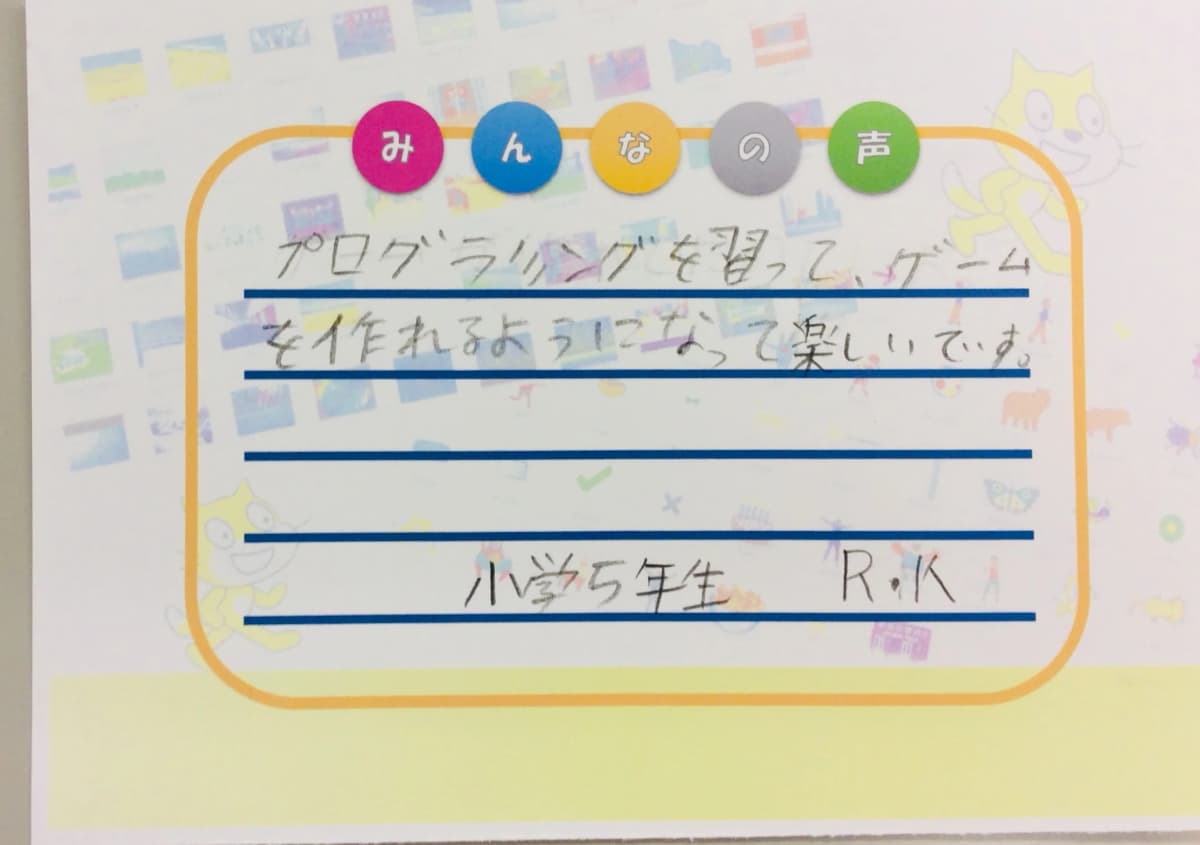 みんなの声
プログラミングを習って、ゲーム
を作れるようになって楽しいです。
小学5年生 R.K